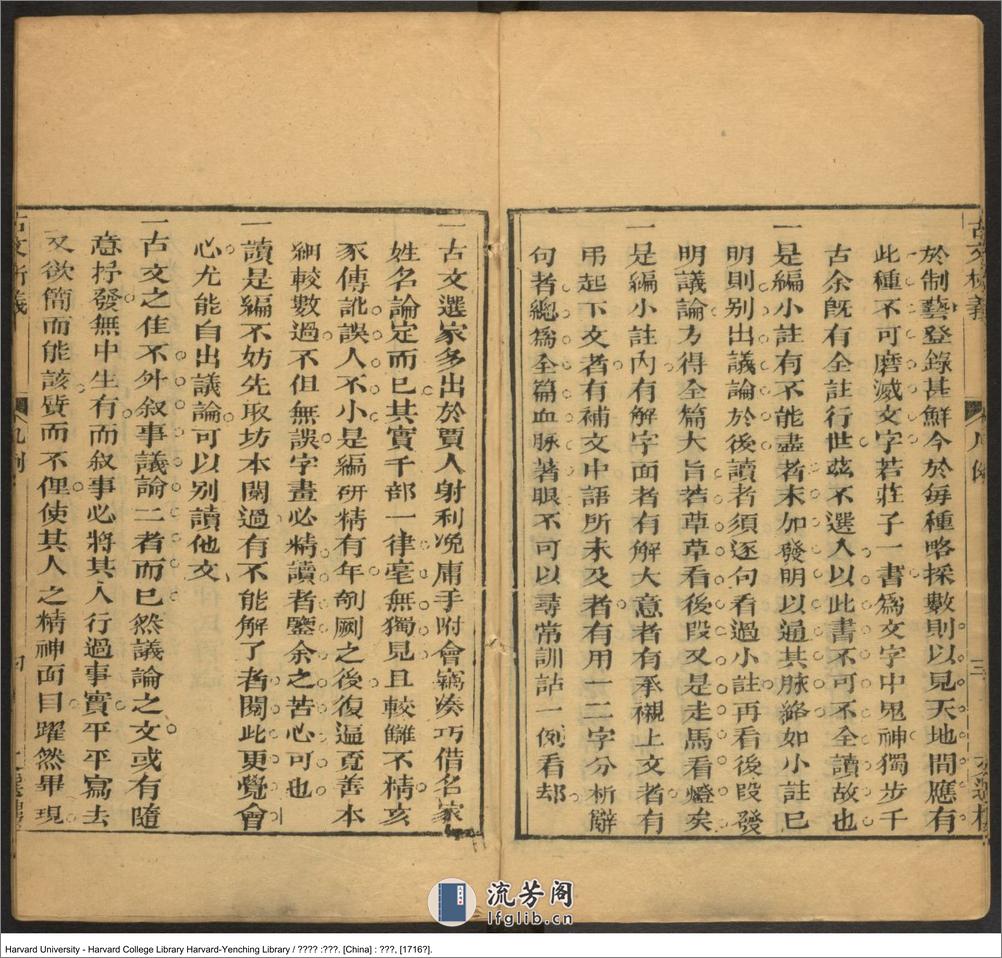 於制藝登錄甚鮮今於每種略採數則以見天地間應有
此種不可磨滅文字若莊子一書爲文字中鬼神獨步千
古余旣有全註行世茲不選入以此書不可不全讀故也
一是編小註有不能盡者末加發明以通其脉絡如小註已
明則别出議論於後讀者須逐句看過小註再看後段發
明議論方得全篇大旨若草草看後段又是走馬看燈矣
一是編小註內有解字面者有解大意者有承襯上文者有
吊起下文者有補文中語所未及者有用一二字分析辭
句者總爲全篇血脉著眼不可以尋常訓詁一例看却
古文析義
凡例
三
一古文選家多出於賈人射利凂庸手附會竊凑巧借名家
姓名論定而已其實千部一律毫無獨見且較讎不精亥
豕傳訛誤人不小是編硏精有年剞劂之後復逼覔善本
細較數過不但無誤字畫必精讀者鑒余之苦心可也
一讀是編不妨先取坊本閱過有不能解了者閱此更覺會
心尤能自出議論可以别讀他文
一古文之佳不外叙事議論二者而已然議論之文或有隨
意抒發無中生有而叙事必將其人行過事實平平寫去
又欲簡而能該質而不俚使其人之精神面目躍然畢現
古文析義
凡例
四
流芳阁
lfglib.cn
Harvard University - Harvard College Library Harvard-Yenching Library / ???? :???. [China] : ???, [1716?].